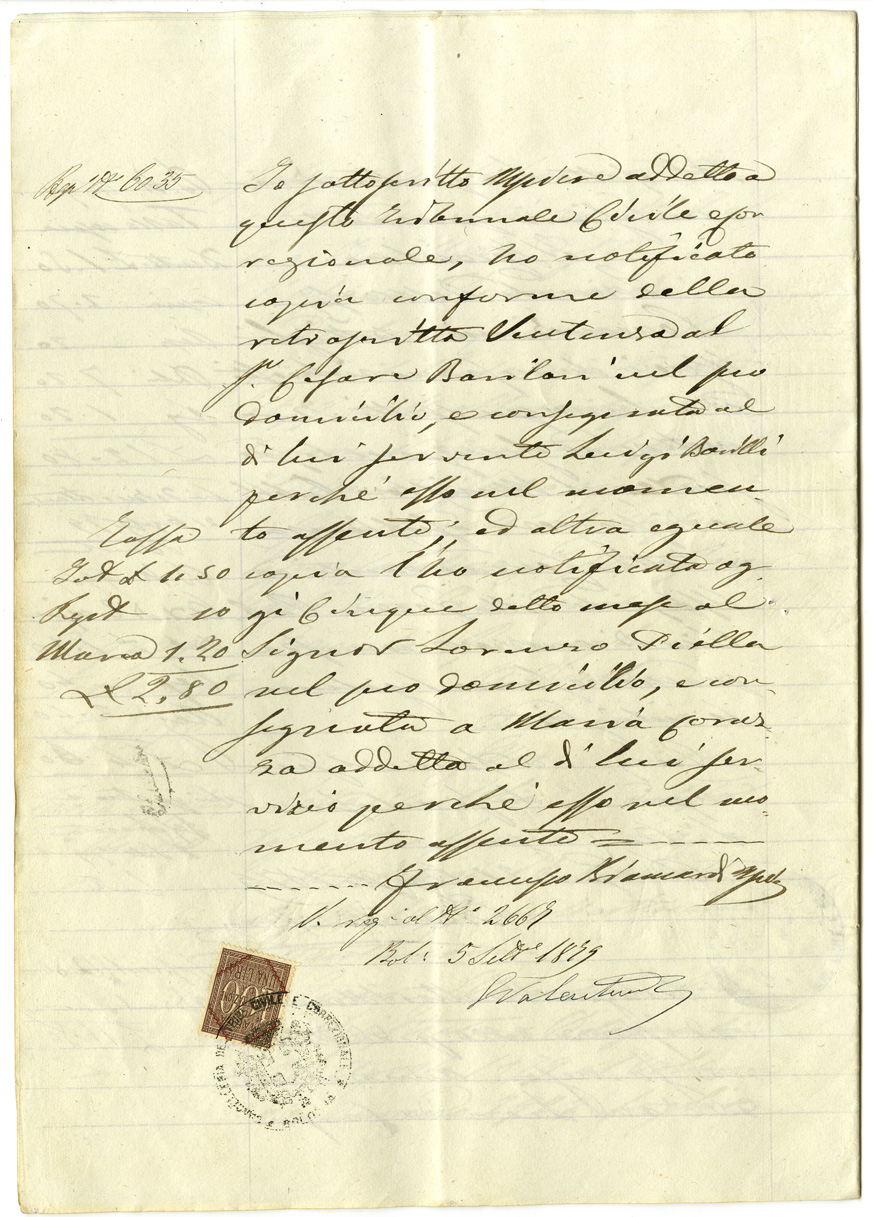 Rep N° 6035
Io sottoscritto Usciere addetto a
questo Tribunale Civile e Cor
rezionale, ho notificato
copia conforme della
retroscritta Sentenza al
Sr. Cesare Barilari nel suo
domicilio, e consegnata al
di lui servente Luigi Borilli
perché esso nel momen
to assente; ed altra eguale
copia l'ho notificata og
gi Cinque detto mese al
Signor Lorenzo Fiella
nel suo domicilio, e con
segnata a Maria Coraz
za addetta al di lui ser
vizio perché esso nel mo
mento assente
Tassa
1.50
10
1.20
£ 2,80
Francesco
V. reg° al N° 2667
Bol: 5 Sette 1879
UNA LIRA
CANCELLERIA DEL TRIB. CIVILE E CORREZIONALE DI BOLOGNA